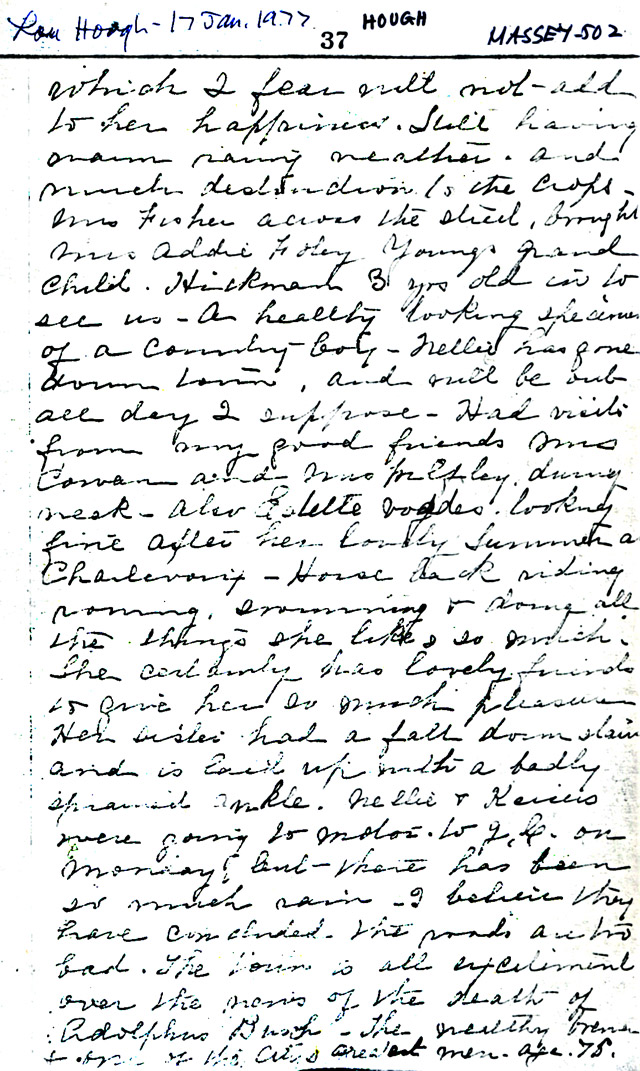 Lou Hough - 17 Jan. 1977 HOUGH MASSEY-502
37
which I fear will not add
to her happiness. Still having
warm rainy weather. and
much destruction to the crops -
Mrs Fisher across the street, brought
Mrs Addie Foley Youngs grand
child. Hickman 3 yrs old in to
see us - A healthy looking specimen
of a country boy - Nellie has gone
down town, and will be out
all day I suppose - Had visits
from my good friends Mrs
Cowan and Mrs during
week - also Estette looking
fine after her lovely summer a
Charlevoix - Horse back riding
rowing, swimming & doing all
the things she likes so much.
She certainly has lovely friends
to give her so much pleasure
Her sister had a fall down stairs
and is laid up with a badly
sprained ankle. Nellie &
were going to motor to J.C. on
Monday, but there has been
so much rain - I believe they
have concluded the roads are too
bad. The town is all excitement
over the news of the death of
Adolphus Busch - The wealthy brewer
& one of the Citys greatest men. age. 75.